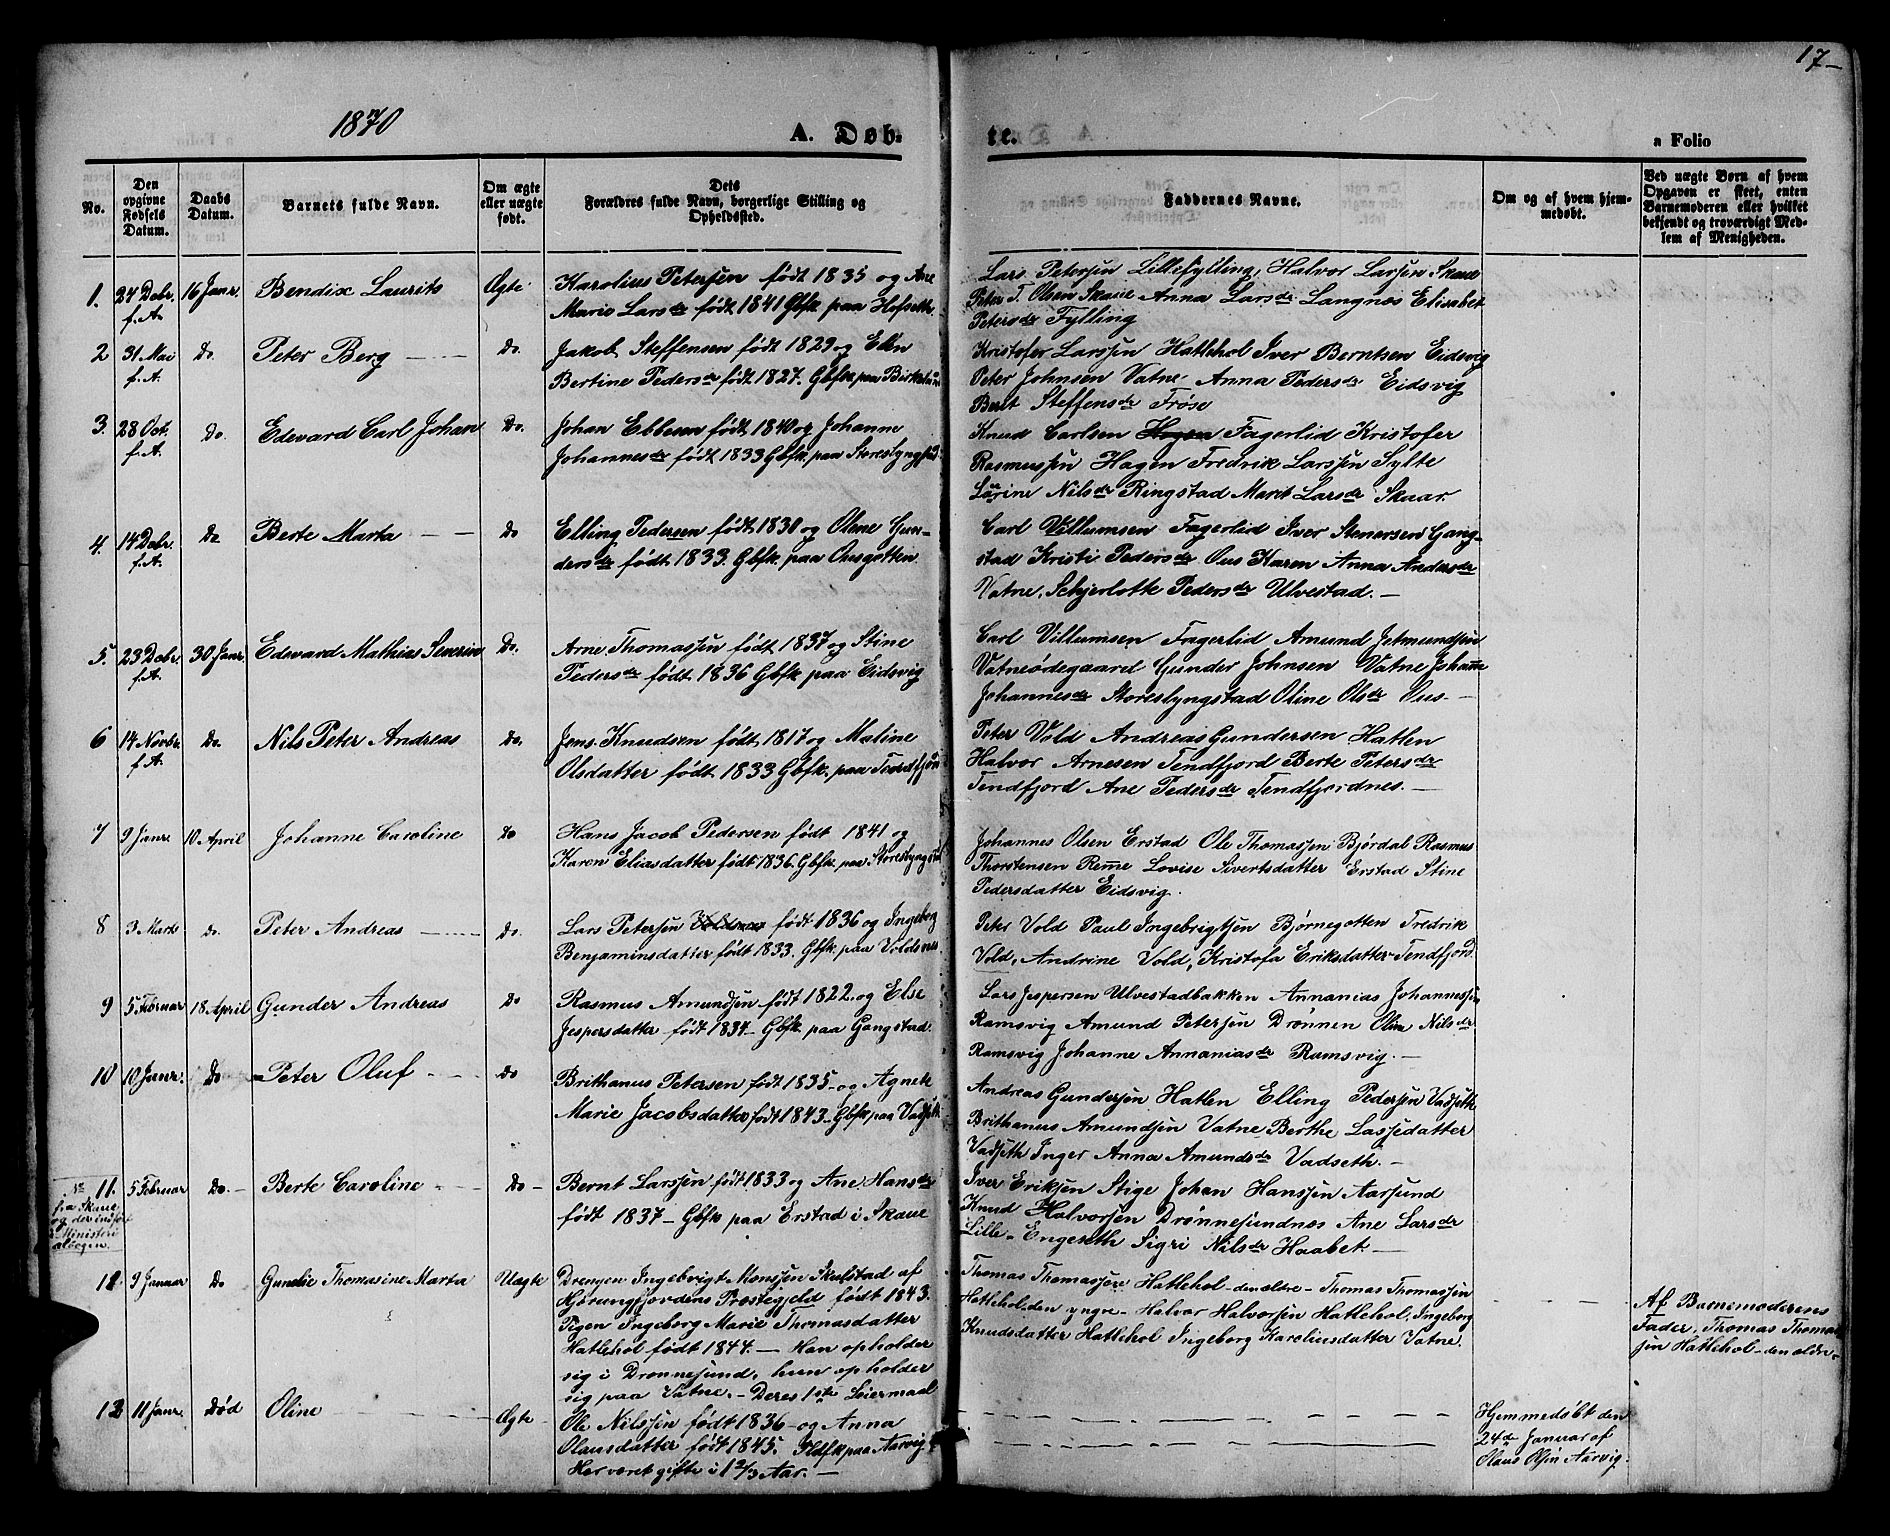 17-
1870
A. Døb-
te.
a Folio
No.
Den opgivne Fødsels Datum.
Daabs Datum.
Barnets fulde Navn.
Om ægte eller uægte født.
Dets Forældres fulde Navn, borgerlige Stilling og Opholdssted.
Faddernes Navne.
Om og af hvem hjemmedøbt.
Ved uægte Børn af hvem Opgaven er skeet, enten Barnemoderen eller hvilket bekjendt og troværdigt Medlem af Menigheden.
1. 27 Debr. f.A. 16 Janr. Bendix Laurits Øgte
Karolius Petersen født 1835 og Ane
Marie Larsdr født 1841 Gbfk paa Hofseth
Lars Petersen Lillefylling, Halvor Larsen Skaue
Peter T. Olsen Skaue Anna Larsdr Langnes Elisabet
Petersdr Fylling
2 31 Mai f.A. Do. Peter Berg Do.
Jakob Steffensen født 1829 og Elen
Bertine Pedersdr født 1827. Gbfk. paa Birkelund
Kristofer Larssen Hatlehol Iver Berntsen Eidsvig
Peter Johnsen Vatne Anna Pedersdr Eidsvig
Berit Steffensdr Frøse
3. 28 Oct. f.A. Do. Edevard Carl Johan Do.
Johan Ebbesen født 1840 og Johanne
Johannesdr født 1833 Gbfk. paa Storeslyngstad
Knud Carlsen Fagerlid Kristofer
Rasmussen Hagen Fredrik Larssen Sylte
Larine Nilsdr Ringstad Marit Larsdr Skaar.
4. 14 Debr. f.A. Do Berte Marta Do
Elling Pedersen født 1830 og Olene Gun-
dersdr født 1833. Gbfk. paa Ousgotten
Carl Villumsen Fagerlid Iver Stenersen Gang-
stad Kristi Pedersdr Ous Karen Anna Andersdr
Vatne, Schjerlotte Pedersdr Ulvestad. —
5. 23 Debr. f.A. 30 Janr. Edevard Mathias Severin Do.
Arne Thomassen født 1837 og Stine
Pedersdr født 1836 Gbfk paa Eidsvig
Carl Villumsen Fagerlid Amund Jetmundsen
Vatneødegaard Gunder Johnsen Vatne Johanne
Johannesdr Storeslyngstad Oline Olsdr Ous —
6 14 Novbr. f.A. Do. Nils Peter Andreas Do.
Jens Knudsen født 1817 og Maline
Olsdatter født 1833 Gbfk. paa Tendfjord
Peter Vold Andreas Gundersen Hatlen
Halvor Arnesen Tendfjord Berte Petersdr
Tendfjord Ane Pedersdr Tendfjordnes. —
7 9 Janr. 10 April Johanne Caroline Do
Hans Jacob Pedersen født 1841 og
Karen Eliasdatter født 1836. Gbfk. paa Storeslyngstad
Johannes Olsen Erstad Ole Thomassen Bjørdal Rasmus
Thorstensen Remme Lovise Sivertsdatter Erstad Stine
Pedersdatter Eidsvig.
8 3 Marts do. Peter Andreas Do.
Lars Petersen Voldsnes født 1836 og Ingeborg
Benjaminsdatter født 1833. Gbfk. paa Voldsnes
Peter Vold Paul Ingebrigtsen Bjørnegotten Fredrik
Vold, Andrine Vold, Kristofa Eriksdatter Tendfjord
9 5 Februar 18 April Gunder Andreas Do
Rasmus Amundsen født 1822. og Else
Jespersdatter født 1834 — Gbfk. paa Gangstad.
Lars Jespersen Ulvestadbakken Annanias Johannessen
Ramsvig Amund Petersen Drønnen Oline Nilsdr
Ramsvig Johanne Annaniasdr Ramsvig. —
10 10 Janr. Do Peter Oluf Do
Brithanus Petersen født 1835 - og Agnete
Marie Jacobsdatter født 1843 - Gbfk. paa Vadseth
Andreas Gundersen Hatlen Elling Pedersen Vadseth
Brithanus Amundsen Vatne Berthe Lassedatter
Vadseth Inger Anna Amundsdr Vadseth. —
11. 5 Februar Do. Berte Caroline Do
№ fra Skaue og der indført i Ministerialbogen.
Bernt Larssen født 1833 og Ane Hansdr
født 1837 — Gbfk paa Erstad i Skaue
Iver Eriksen Stige Johan Hanssen Aarsund
Knud Halvorsen Drønnesundnes Ane Larsdr
Lille-Engeseth Sigri Nilsdr Haabet —
12 9 Januar Do Gunelie Thomasine Marta Uægte
Drengen Ingebrigt Monssen Skulstad af
Hjørungfjordens Prestegjeld født 1843.
Pigen Ingeborg Marie Thomasdatter
Hatlehol født 1844. — Han opholder
sig i Drønnesund, hun opholder
sig paa Vatne. — Deres 1ste Leiermaal
Thomas Thomassen Hatlehol - den eldre - Thomas Thomassen
Hatlehol, den yngre - Halvor Halvorsen Hatlehol, Ingeborg
Knudsdatter Hatlehol Ingeborg Karoliusdatter Vatne.
Af Barnemoderens
Fader, Thomas Thomas-
sen Hatlehol - den ældre -
13 11 Janr. Død Oline Øgte
Ole Nilssen født 1836 - og Anna
Olausdatter født 1845. Hdfk paa Aarvig
Har været gifte i 1 2/3 Aar. —
Hjemmedøbt den
24de Januar af
Olaus Olsen Aarvig.